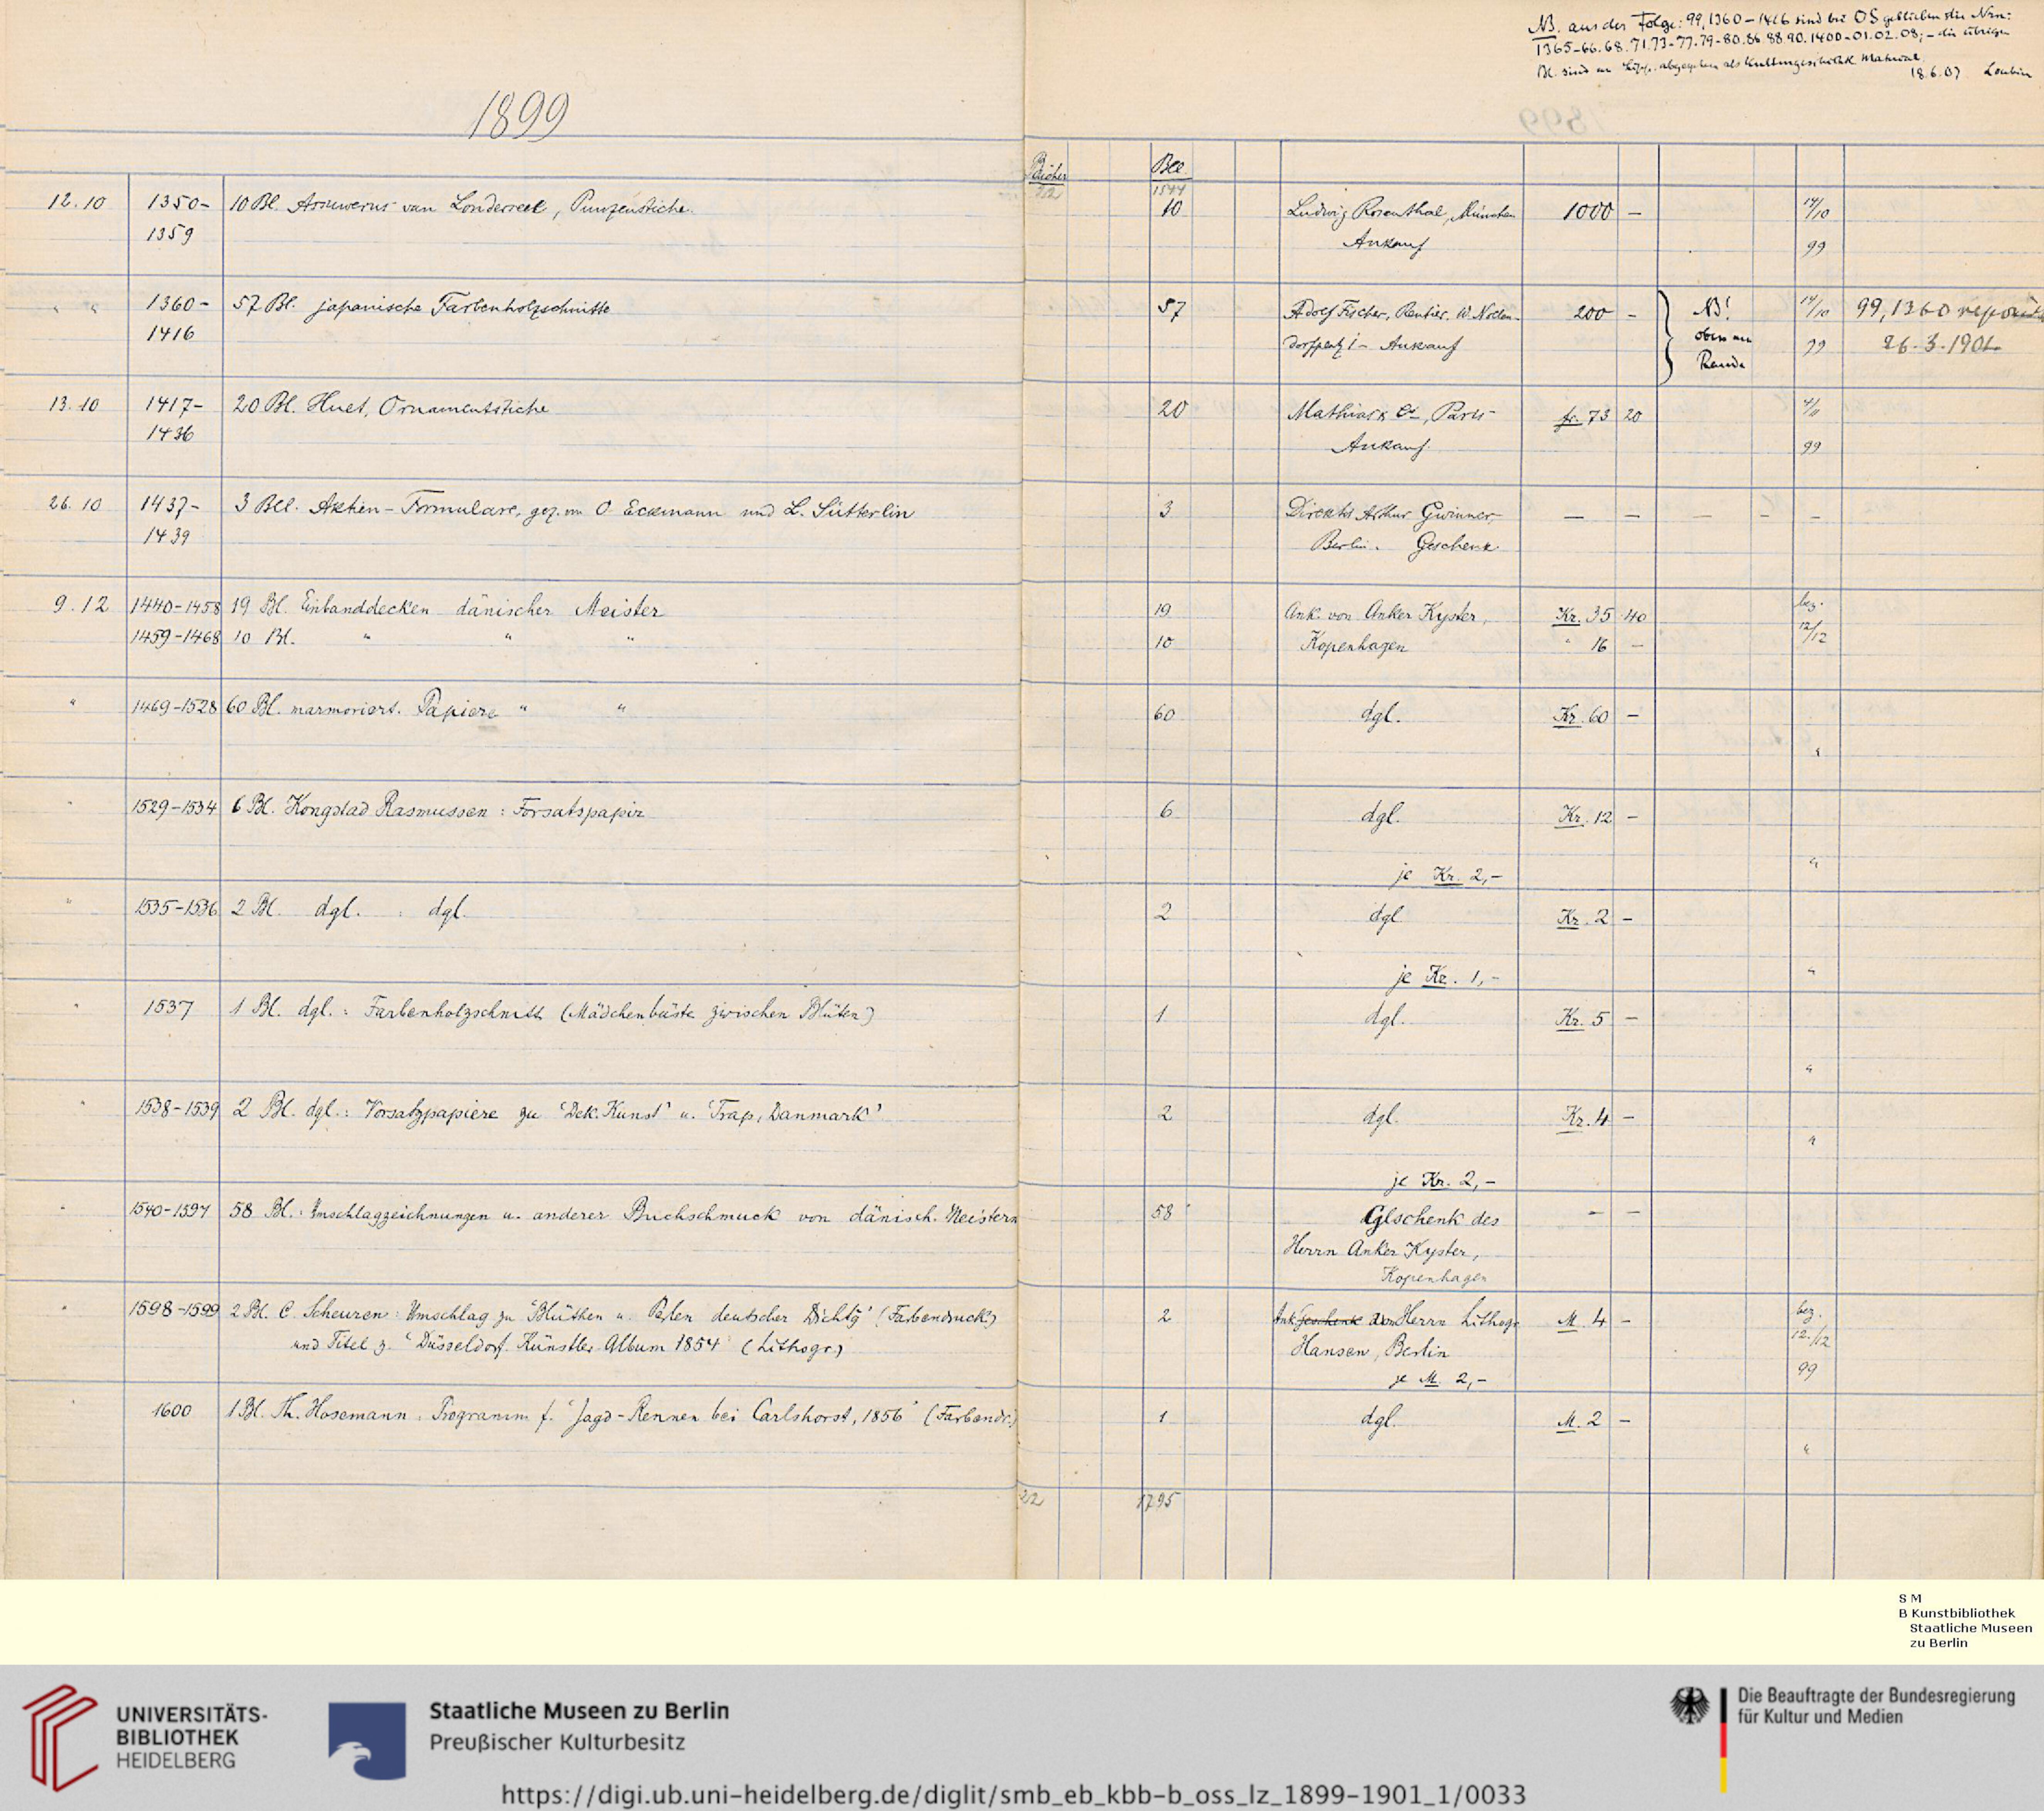 NB. aus der Folge: 99,1360–1416 sind bei OS geblieben die Nrn:
1365–66.68.71.73–77.79–80.86.88.90.1400–01.02.08; – die übrigen
Bl. sind an abgegeben als Material.
18.6.07
1899
Bücher Bll.
22 1544
12.10 1350– 10 Bl. van Londerseel, Punzenstiche. 10 Ludwig Rosenthal, München 1000 – 14/10
1359 Ankauf 99
" " 1360– 57 Bl. japanische Farbenholzschnitte 57 Adolf Fischer, Rentier. W. Nollen- 200 – NB! 14/10 99,1360
1416 dorfplatz 1 – Ankauf oben am 99 26.3.1901
Rande
13.10 1417– 20 Bl. Huet, Ornamentstiche 20 Mathias & Co, Paris fr. 73 20
1436 Ankauf. 99
26.10 1437– 3 Bll. Aktien-Formulare, gez. von O. Eckmann und L. Sütterlin 3 Direktor Arthur Gwinner, — — — – –
1439 Berlin. Geschenk
9.12 1440–1458 19 Bl. Einbanddecken dänischer Meister 19 Ank. von Anker Kyster, Kr. 35 40 bez.
1459–1468 10 Bl. " " " 10 Kopenhagen " 16 – 12/12
" 1469–1528 60 Bl. marmoriert. Papiere " " 60 dgl. Kr. 60 – "
" 1529–1534 6 Bl. Kongstad Rasmussen : Forsatspapir 6 dgl. Kr. 12 –
je Kr. 2,– "
" 1535–1536 2 Bl. dgl. : dgl. 2 dgl Kr. 2 –
je Kr. 1,– "
" 1537 1 Bl. dgl. : Farbenholzschnitt (Mädchenbüste zwischen Blüten) 1 dgl. Kr. 5 – "
" 1538–1539 2 Bl. dgl.: Vorsatzpapiere zu 'Dek. Kunst' u. 'Trap, Danmark' 2 dgl. Kr. 4 – "
je Kr. 2,–
" 1540–1597 58 Bl.: Umschlagzeichnungen u. anderer Buchschmuck von dänisch. Meistern 58 Geschenk des – –
Herrn Anker Kyster,
Kopenhagen
" 1598–1599 2 Bl. C. Scheuren: Umschlag zu "Blüthen u. Perlen deutscher Dichtg" (Farbendruck) 2 Ank. Geschenk von Herrn Lithogr. M. 4 – bez.
und Titel z. "Düsseldorf. Künstler-Album 1854" (Lithogr.) Hansen, Berlin 12./12
je M. 2,– 99
" 1600 1 Bl. Th. Hosemann : Programm f. "Jagd-Rennen bei Carlshorst, 1856" (Farbendr.) 1 dgl. M. 2 – "
22 1795
S M
B Kunstbibliothek
Staatliche Museen
zu Berlin
UNIVERSITÄTS-
BIBLIOTHEK
HEIDELBERG
Staatliche Museen zu Berlin
Preußischer Kulturbesitz
Die Beauftragte der Bundesregierung
für Kultur und Medien
https://digi.ub.uni-heidelberg.de/diglit/smb_eb_kbb-b_oss_lz_1899-1901_1/0033